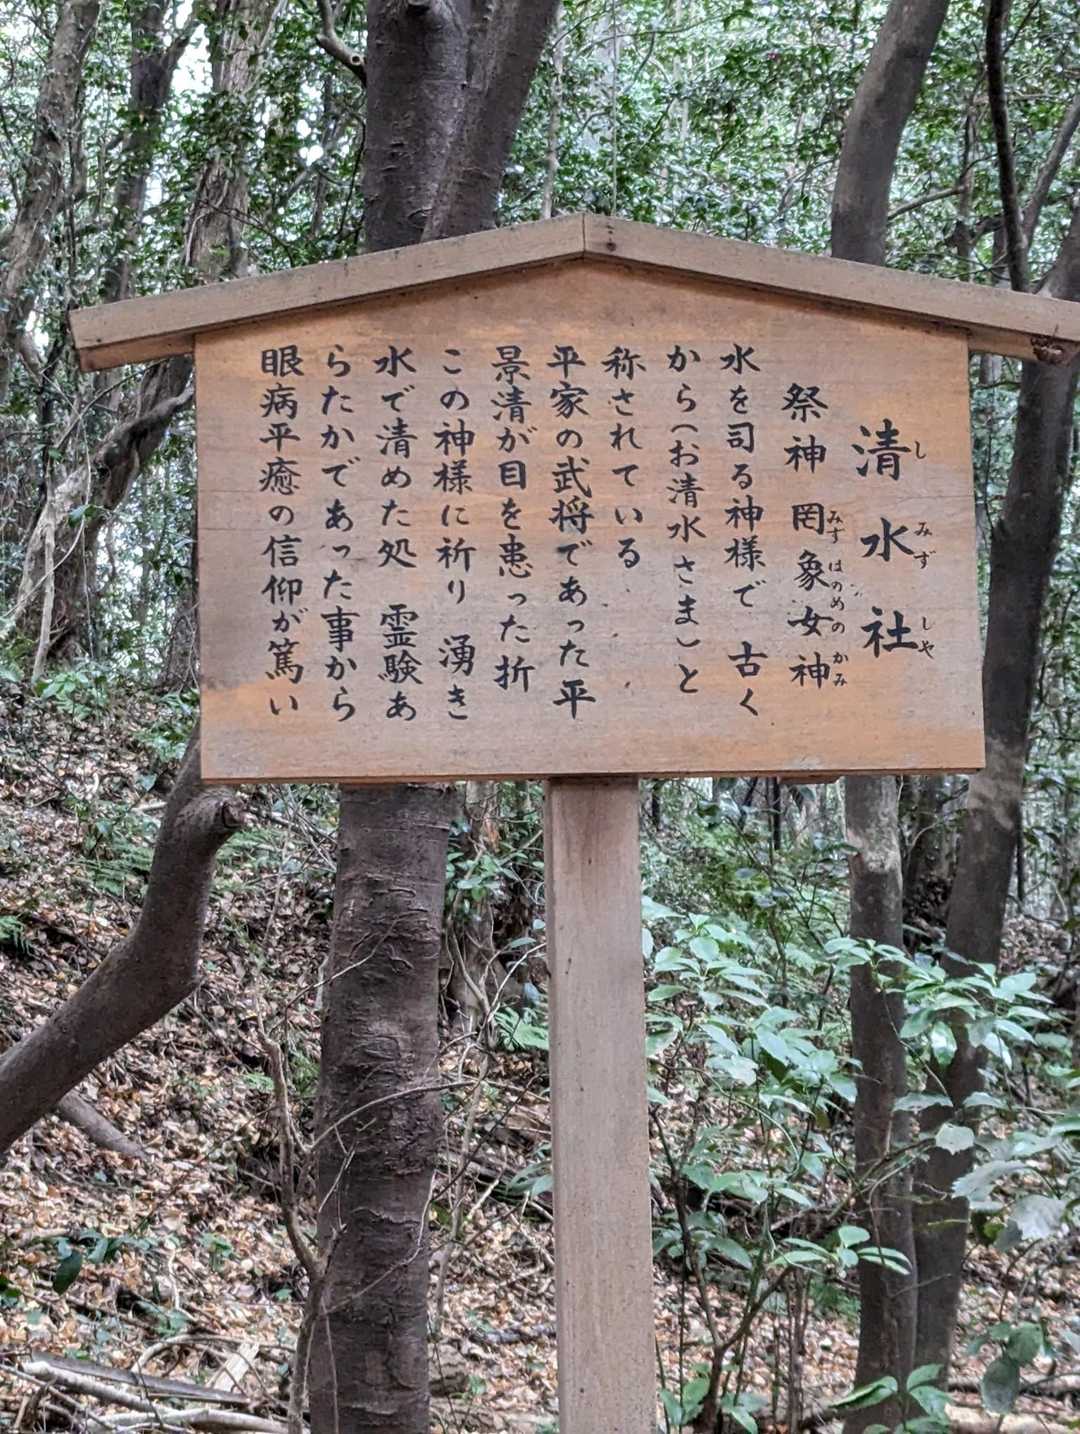 清水社
しみずしや
祭神 罔象女神
みずはのめのかみ
水を司る神様で 古く
から(お清水さま)と
称されている
平家の武将であった平
景清が目を患った折
この神様に祈り 湧き
水で清めた処 霊験あ
らたかであった事から
眼病平癒の信仰が篤い